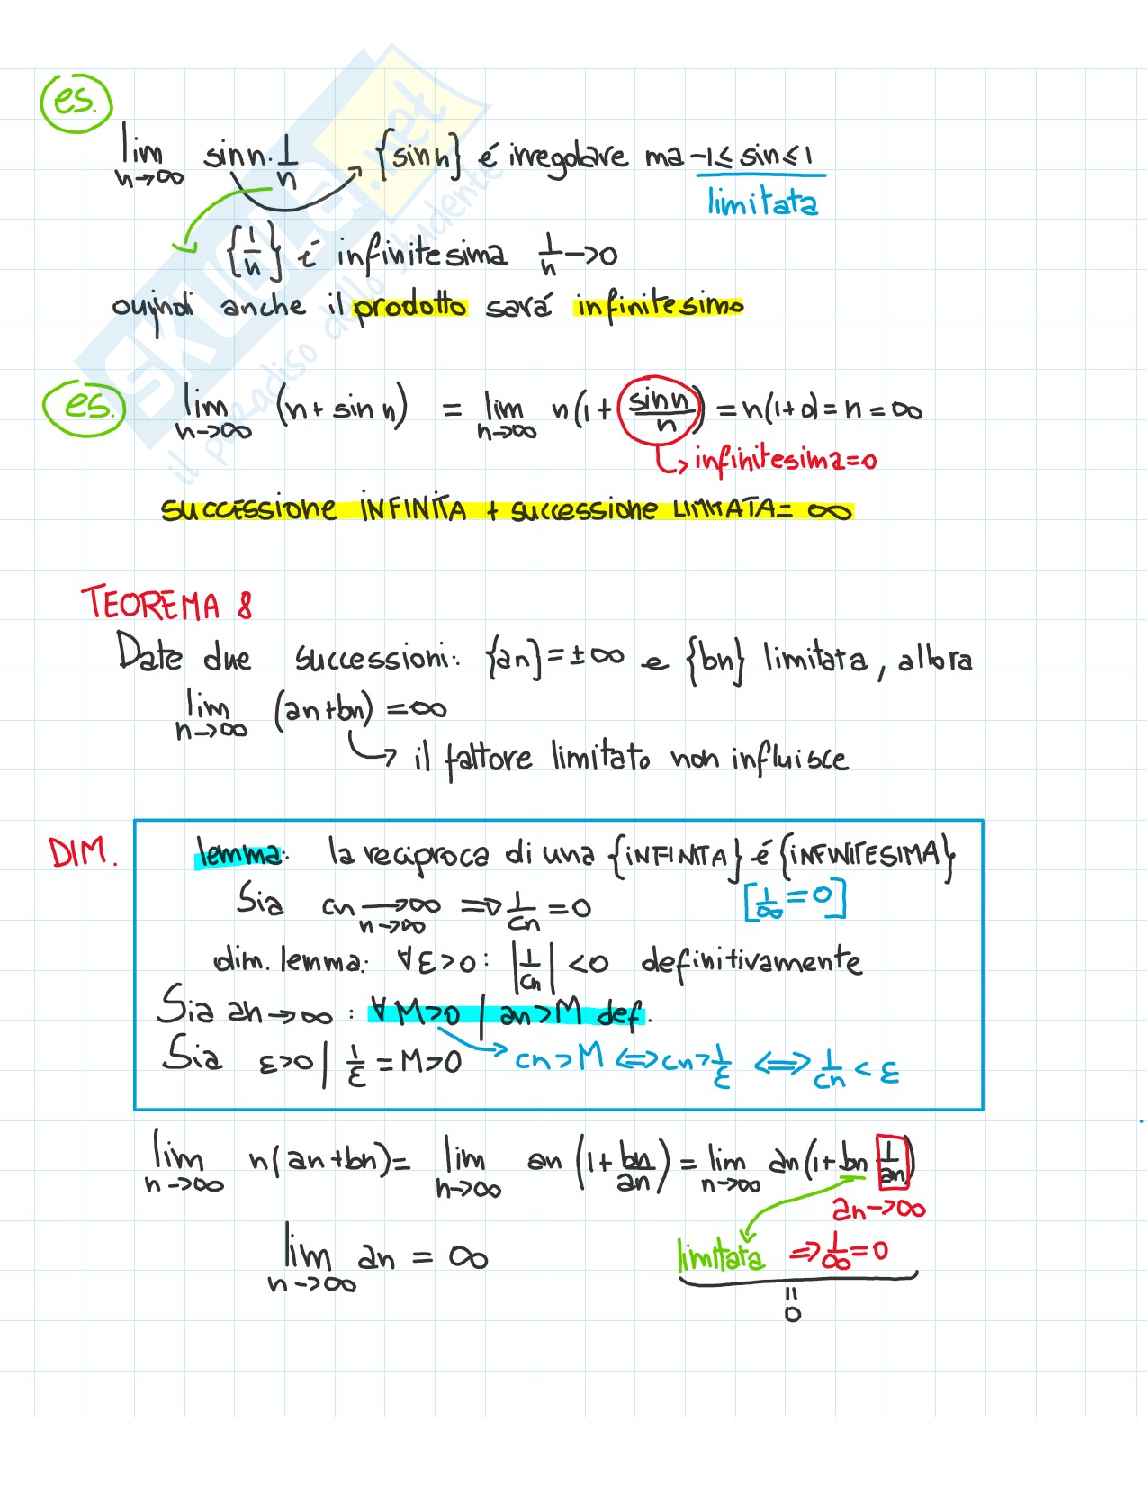 es.
lim n→∞ sin n · 1/n {sin n} é irregolare ma -1 ≤ sin ≤ 1
limitata
{1/n} é infinitesima 1/n → 0
quindi anche il prodotto sará infinitesimo
es. lim n→∞ (n + sin n) = lim n→∞ n(1 + sin n/n) = n(1+0) = n = ∞
↳ infinitesima = 0
successione INFINITA + successione LIMITATA = ∞
TEOREMA 8
Date due successioni: {an} = ±∞ e {bn} limitata, allora
lim n→∞ (an+bn) = ∞
↳ il fattore limitato non influisce
DIM.
lemma: la reciproca di una {INFINITA} é {INFINITESIMA}
Sia cn → ∞ n→∞ ⇒ 1/cn = 0 [1/∞ = 0]
dim. lemma: ∀ε>0 : |1/cn| < 0 definitivamente
Sia an → ∞ : ∀M>0 | an>M def.
Sia ε>0 | 1/ε = M>0 → cn > M ⇔ cn > 1/ε ⇔ 1/cn < ε
lim n→∞ n(an+bn) = lim n→∞ an (1 + bn/an) = lim n→∞ an (1 + bn 1/an)
an → ∞
lim n→∞ an = ∞ limitata ⇒ 1/∞ = 0
= 0
SKUOLA.net
il paradiso dello studente